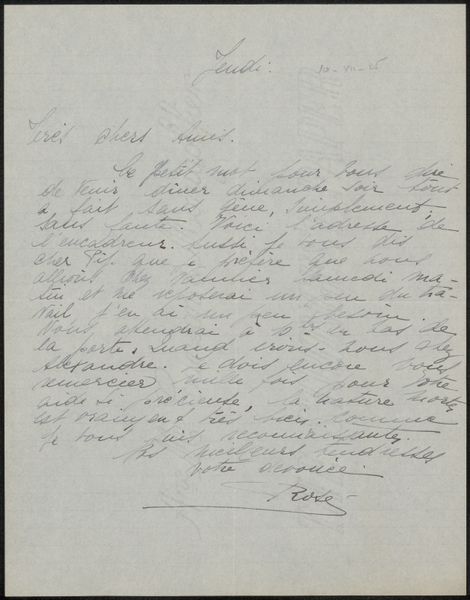 Jeudi. 10-VII-25
Très Chers Amis.
Ce petit mot pour vous dire
de venir dîner dimanche soir tout
à fait sans gêne, simplement,
sans faute. Voici l'adresse de
l'encadreur. Aussi je vous dis
cher Pif. que je préfère que nous
allions chez Samedi ma-
tin et me reposerai un peu du tra-
vail j'en ai un peu besoin.
Vous atendrai à 10 hrs en bas de
la porte. Quand irons-nous chez
Alexandre. Je dois encore vous
remercier mille fois pour votre
aide si précieuse, la nature morte
est vraiment très bien. Comme
je vous suis reconnaissante.
Mes meilleurs tendresses
votre devouée.
Rose